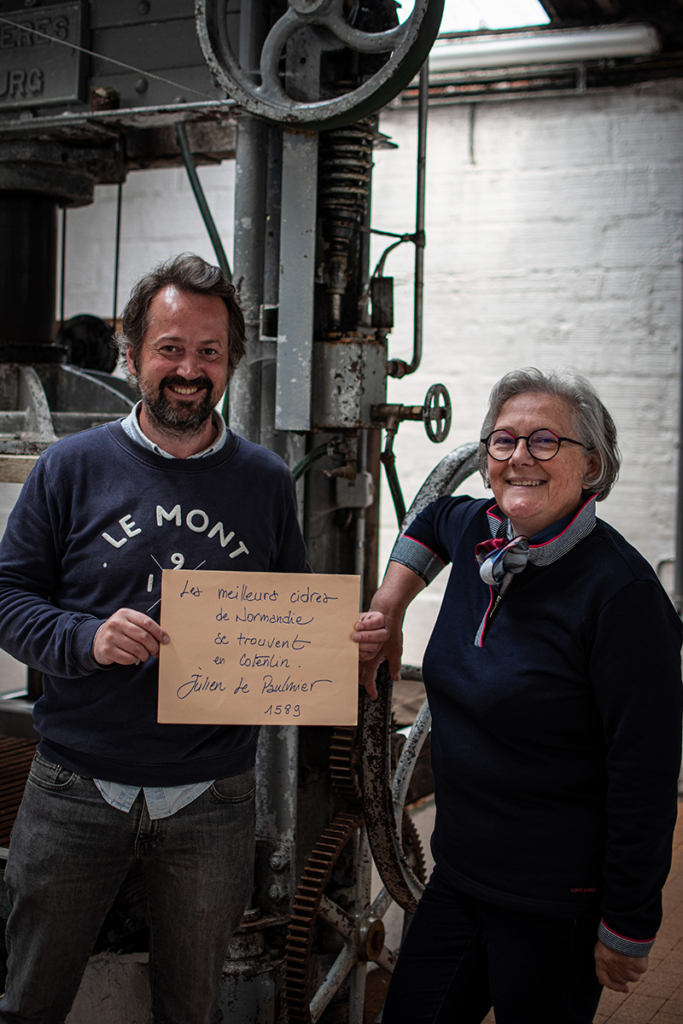 ERES
URG
LE MONT
19
Les meilleurs cidres
de Normandie
se trouvent
en Cotentin.
Julien le Paulmier
1589